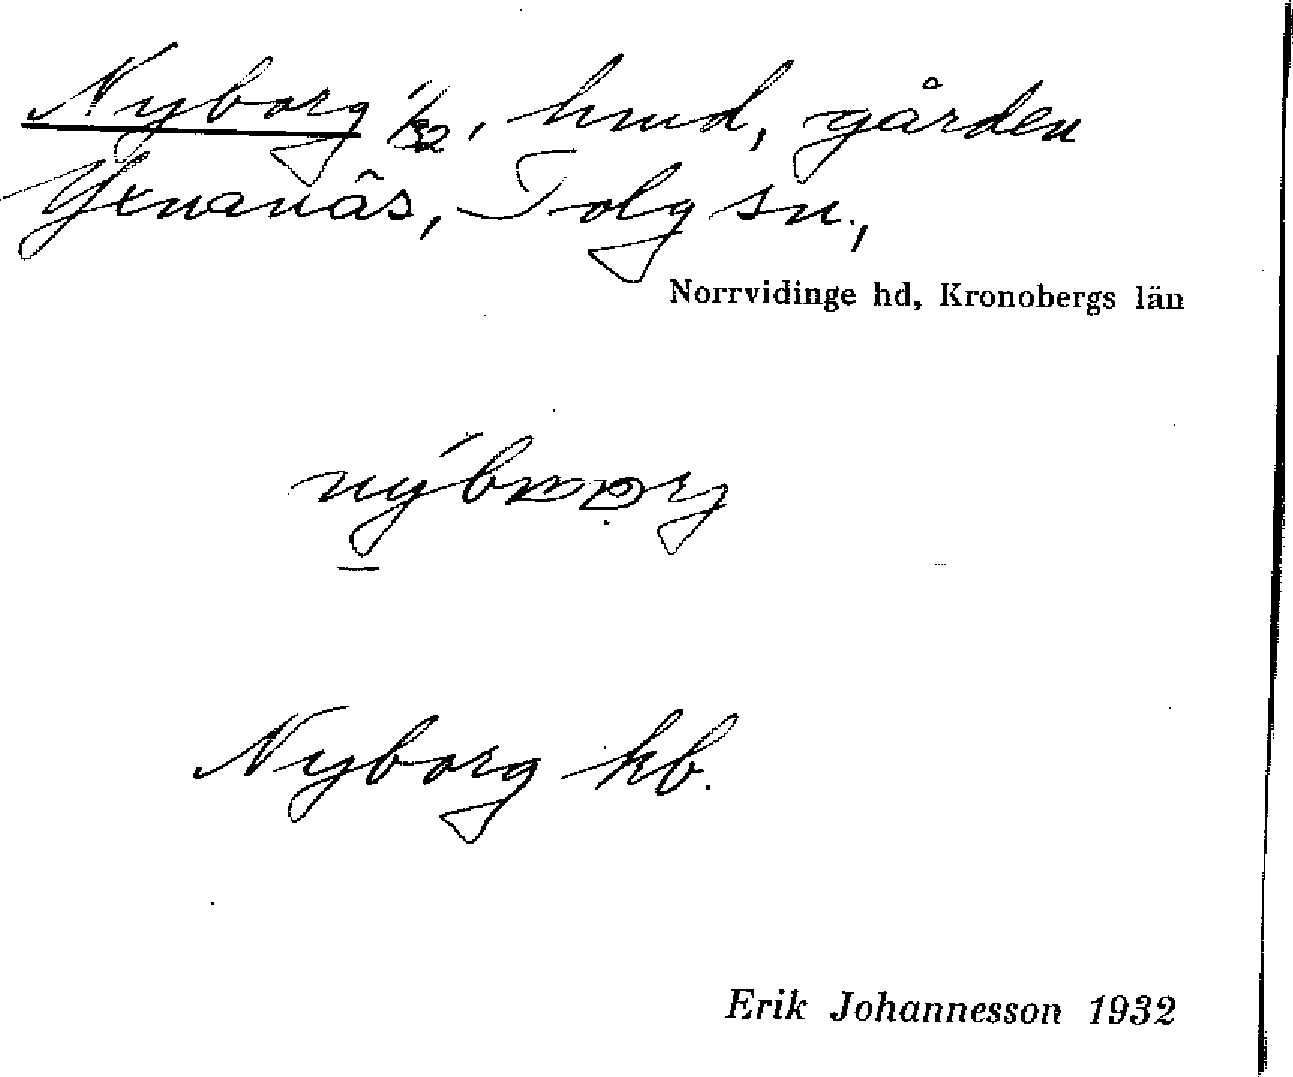 Nyborg 1/32, hmd, gården
Yxnanäs, Tolg sn.,
Norrvidinge hd, Kronobergs län
Nyborg kb.
Erik Johannesson 1932